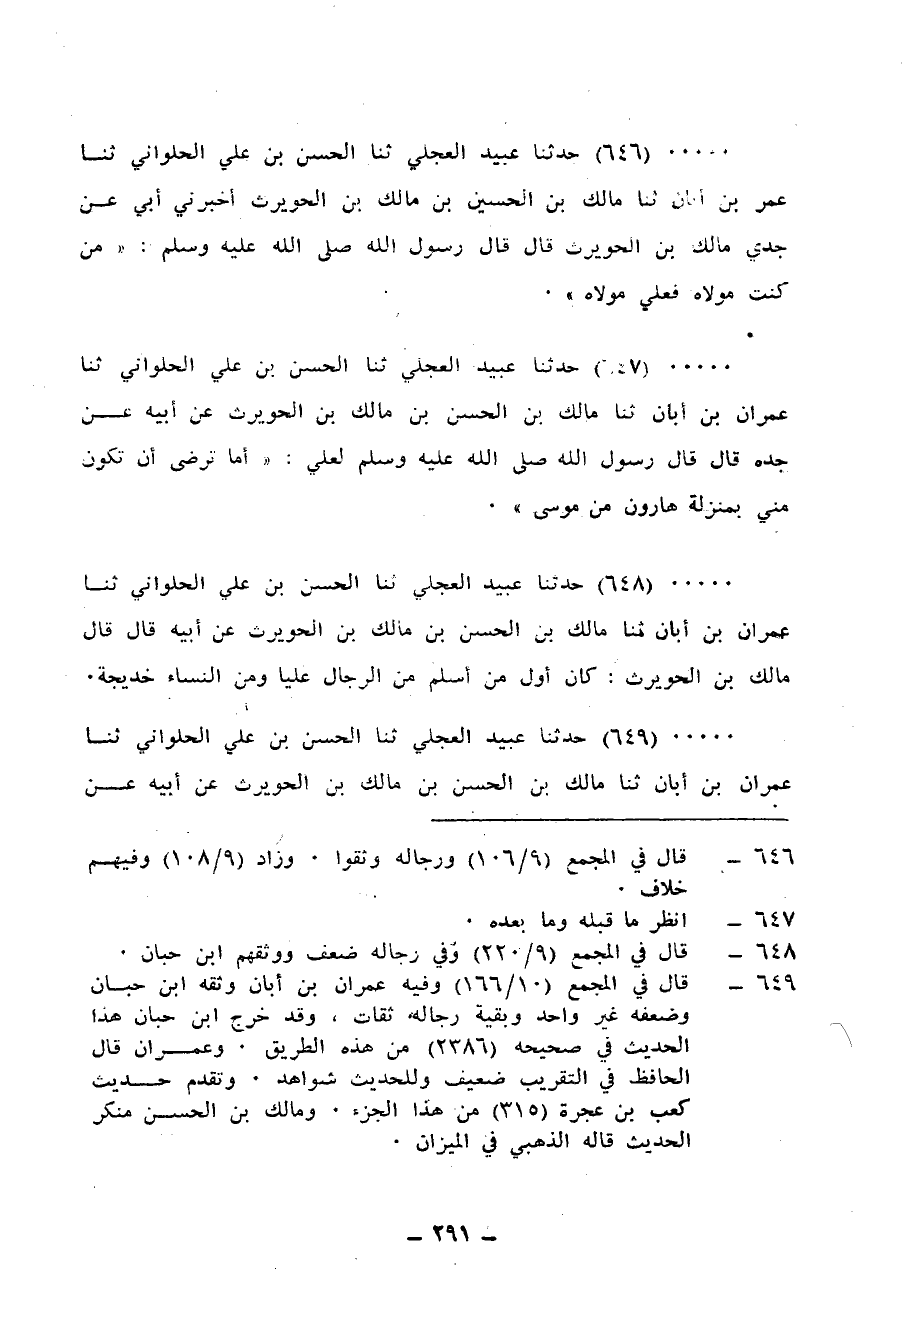 ٠٠٠٠٠ (٦٤٦) حدثنا عبيد العجلي ثنا الحسن بن علي الحلواني ثنـا
عمر بن أبان ثنا مالك بن الحسين بن مالك بن الحويرث أخبرني أبي عـن
جدي مالك بن الحويرث قال قال رسول الله صلى الله عليه وسلم : « من
كنت مولاه فعلي مولاه » ٠
٠٠٠٠٠ (٦٤٧) حدثنا عبيد العجلي ثنا الحسن بن علي الحلواني ثنا
عمران بن أبان ثنا مالك بن الحسن بن مالك بن الحويرث عن أبيه عـــن
جده قال قال رسول الله صلى الله عليه وسلم لعلي : « أما ترضى أن تكون
مني بمنزلة هارون من موسى » ٠
٠٠٠٠٠ (٦٤٨) حدثنا عبيد العجلي ثنا الحسن بن علي الحلواني ثنـا
عمران بن أبان ثنا مالك بن الحسن بن مالك بن الحويرث عن أبيه قال قال
مالك بن الحويرث : كان أول من أسلم من الرجال عليا ومن النساء خديجة٠
٠٠٠٠٠ (٦٤٩) حدثنا عبيد العجلي ثنا الحسن بن علي الحلواني ثنـا
عمران بن أبان ثنا مالك بن الحسن بن مالك بن الحويرث عن أبيه عـــن
٦٤٦ ــ قال في المجمع (١٠٦/٩) ورجاله وثقوا ٠ وزاد (١٠٨/٩) وفيهـم
خلاف ٠
٦٤٧ ــ انظر ما قبله وما بعده ٠
٦٤٨ ــ قال في المجمع (٢٢٠/٩) وفي رجاله ضعف ووثقهم ابن حبان ٠
٦٤٩ ــ قال في المجمع (١٦٦/١٠) وفيه عمران بن أبان وثقه ابن حبـان
وضعفه غير واحد وبقية رجاله ثقات ، وقد خرج ابن حبان هذا
الحديث في صحيحه (٢٣٨٦) من هذه الطريق ٠ وعمـــران قال
الحافظ في التقريب ضعيف وللحديث شواهد ٠ وتقدم حـــديث
كعب بن عجرة (٣١٥) من هذا الجزء ٠ ومالك بن الحســن منكر
الحديث قاله الذهبي في الميزان ٠
ــ ٢٩١ ــ